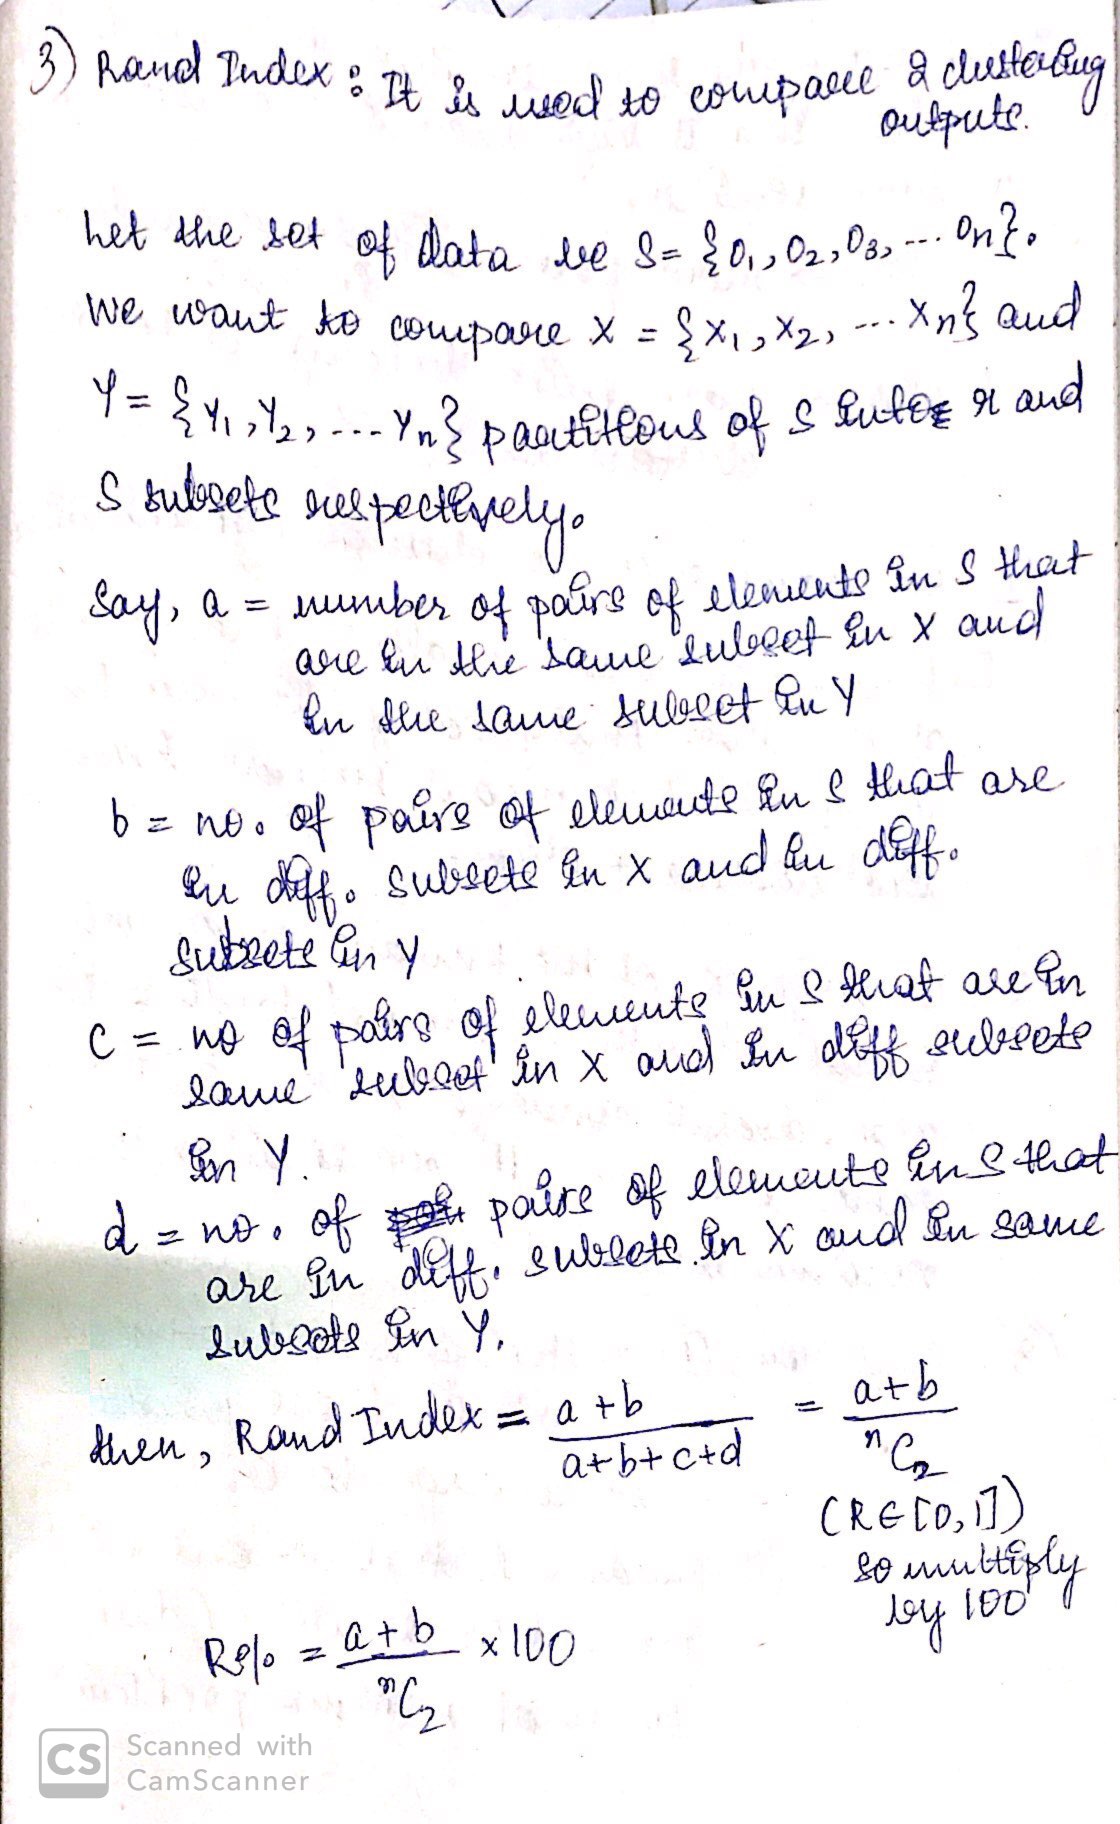 3) Rand Index : It is used to compare 2 clustering
outputs.
Let the set of data be S = {O₁, O₂, O₃, ... Oₙ}.
We want to compare X = {X₁, X₂, ... Xₙ} and
Y = {Y₁, Y₂, ... Yₙ} partitions of S into r and
S subsets respectively.
Say, a = number of pairs of elements in S that
are in the same subset in X and
in the same subset in Y
b = no. of pairs of elements in S that are
in diff. subsets in X and in diff.
subsets in Y
c = no of pairs of elements in S that are in
same subset in X and in diff subsets
in Y.
d = no. of pairs of elements in S that
are in diff. subsets in X and in same
subsets in Y.
then, Rand Index = (a+b)/(a+b+c+d) = (a+b)/ⁿC₂
(R∈[0,1])
so multiply
by 100
R% = (a+b)/ⁿC₂ × 100
CS Scanned with
CamScanner